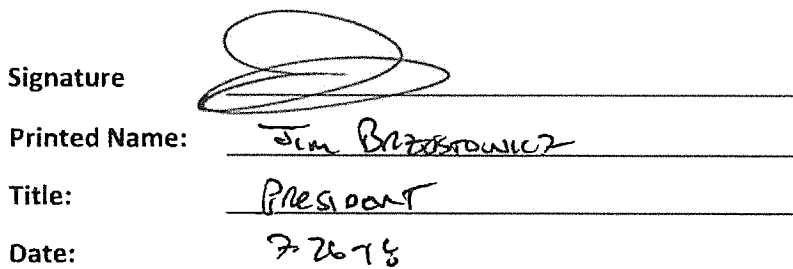 Signature
Printed Name: Jim Brzostowicz
Title: President
Date: 7-26-18